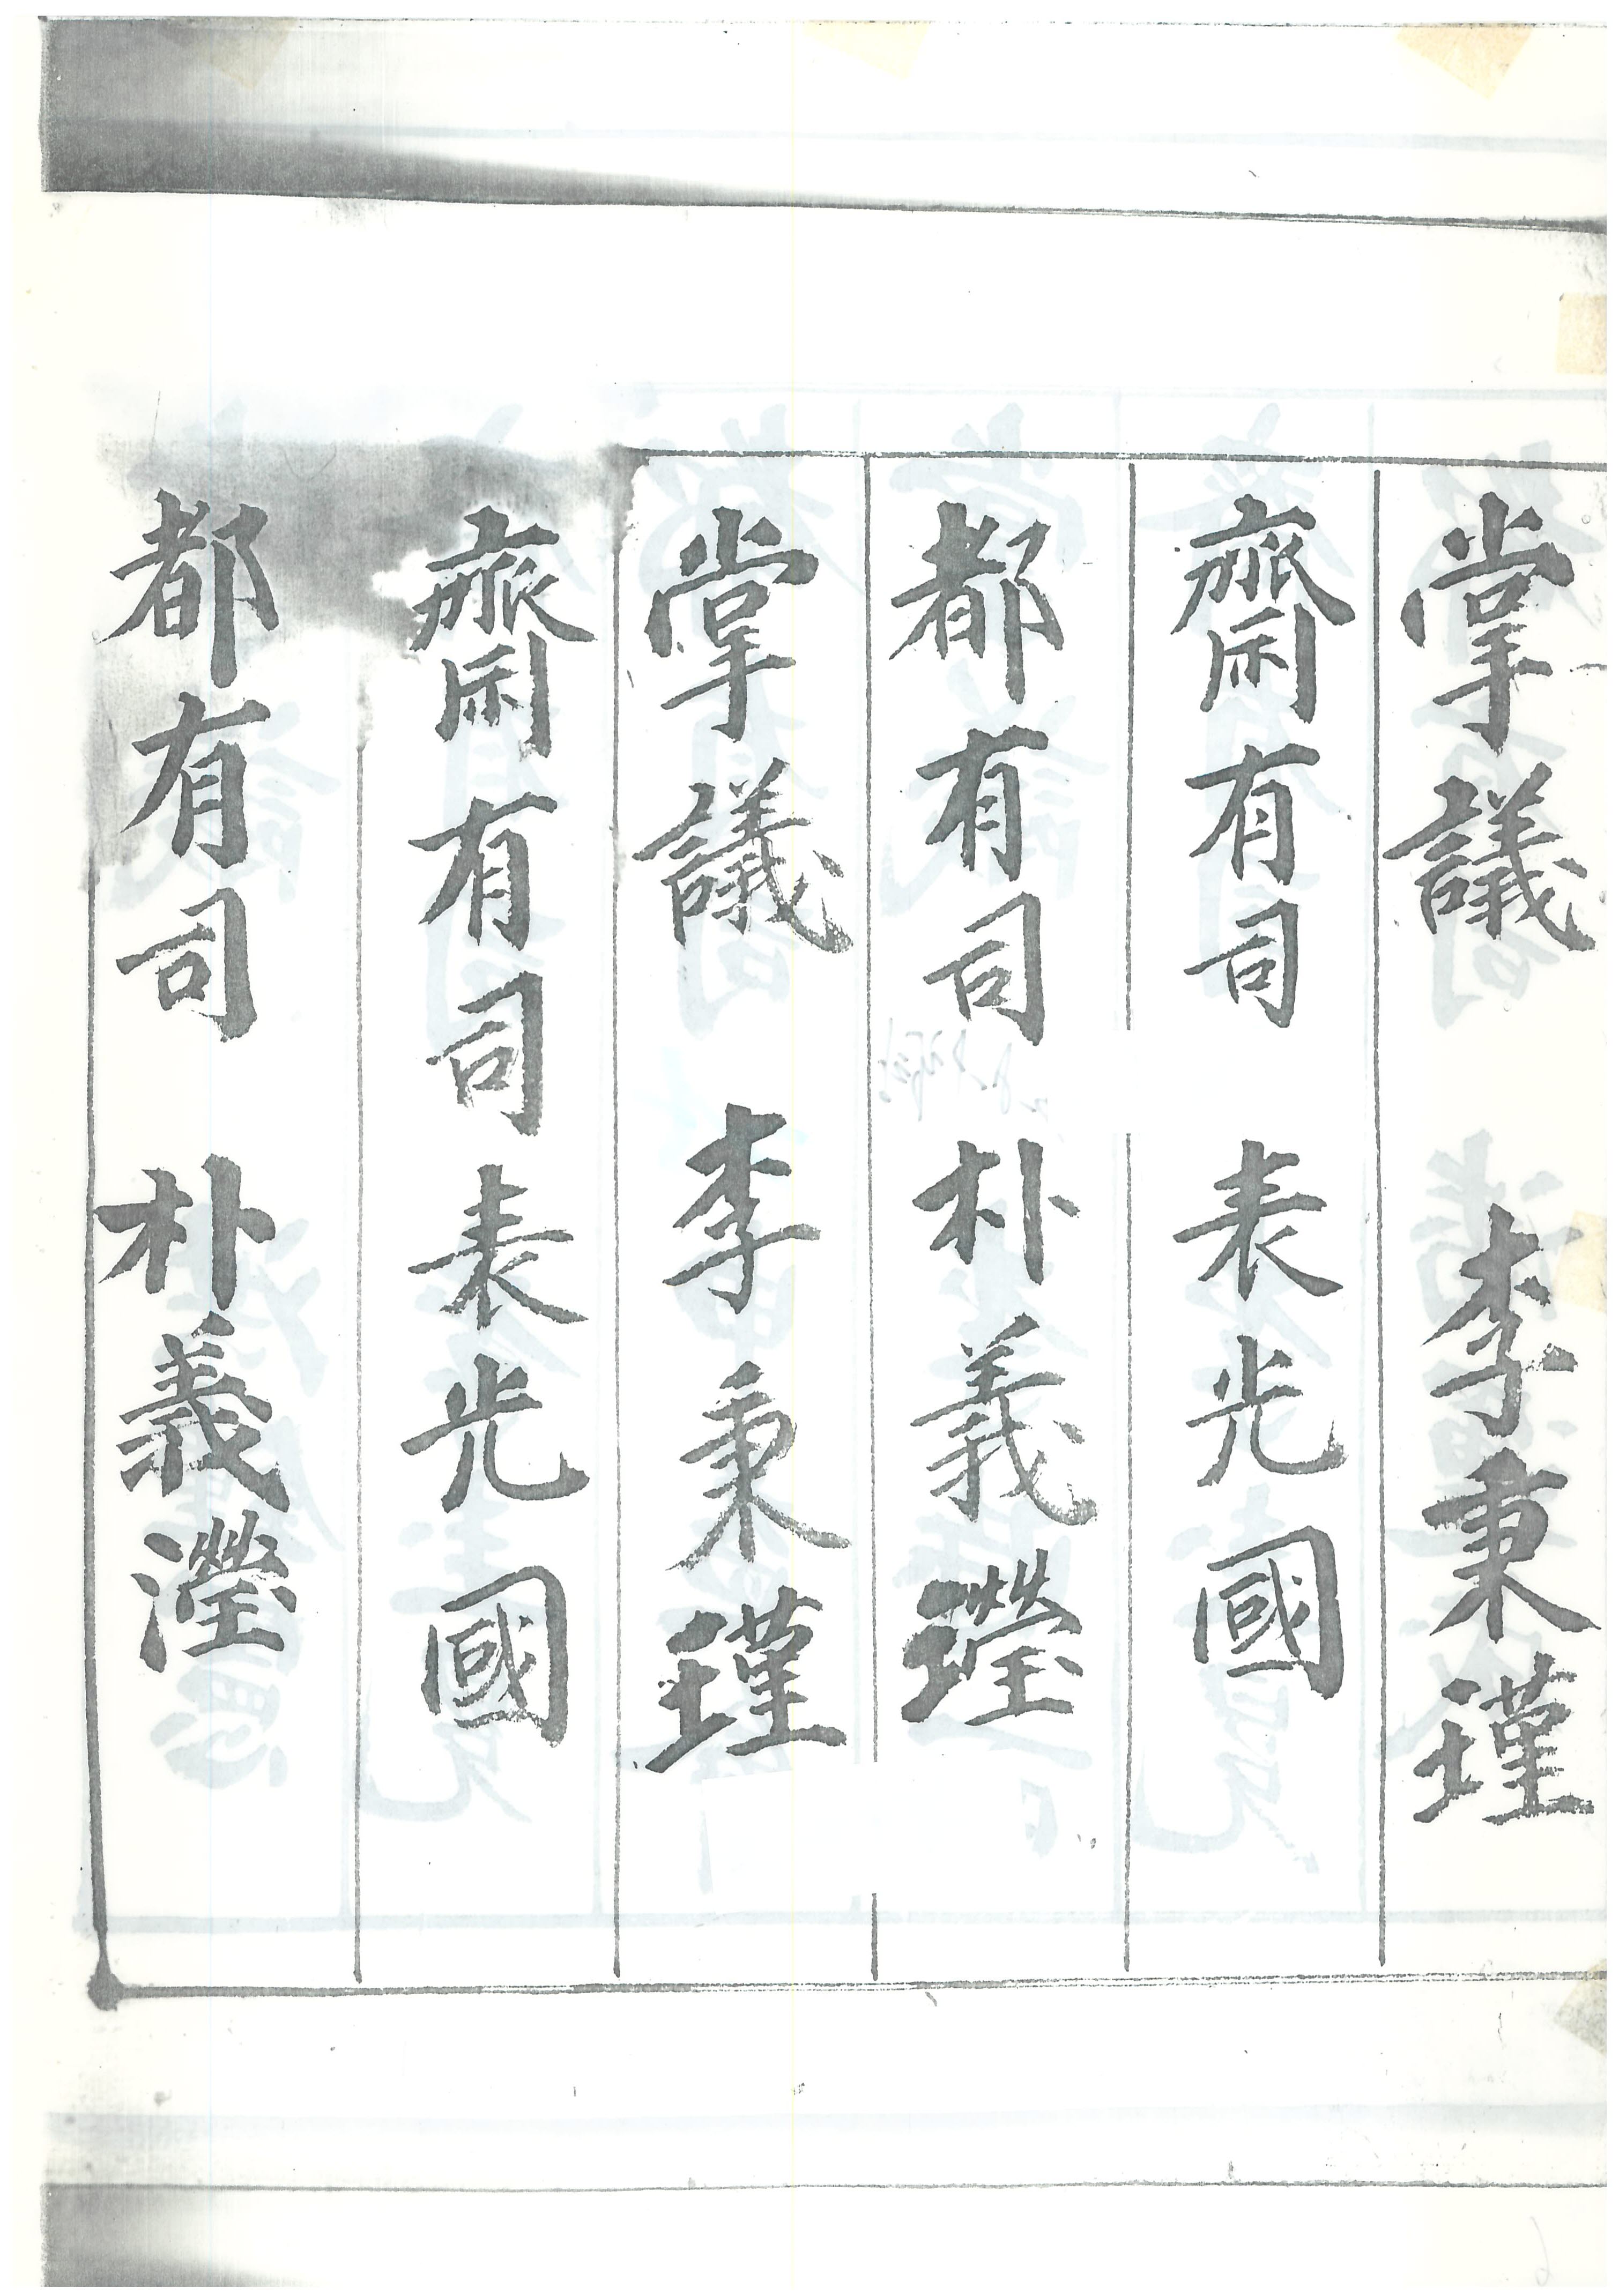 掌議 李秉瑾
齋有司 表光國
都有司 朴義瀅
掌議 李秉瑾
齋有司 表光國
都有司 朴義瀅